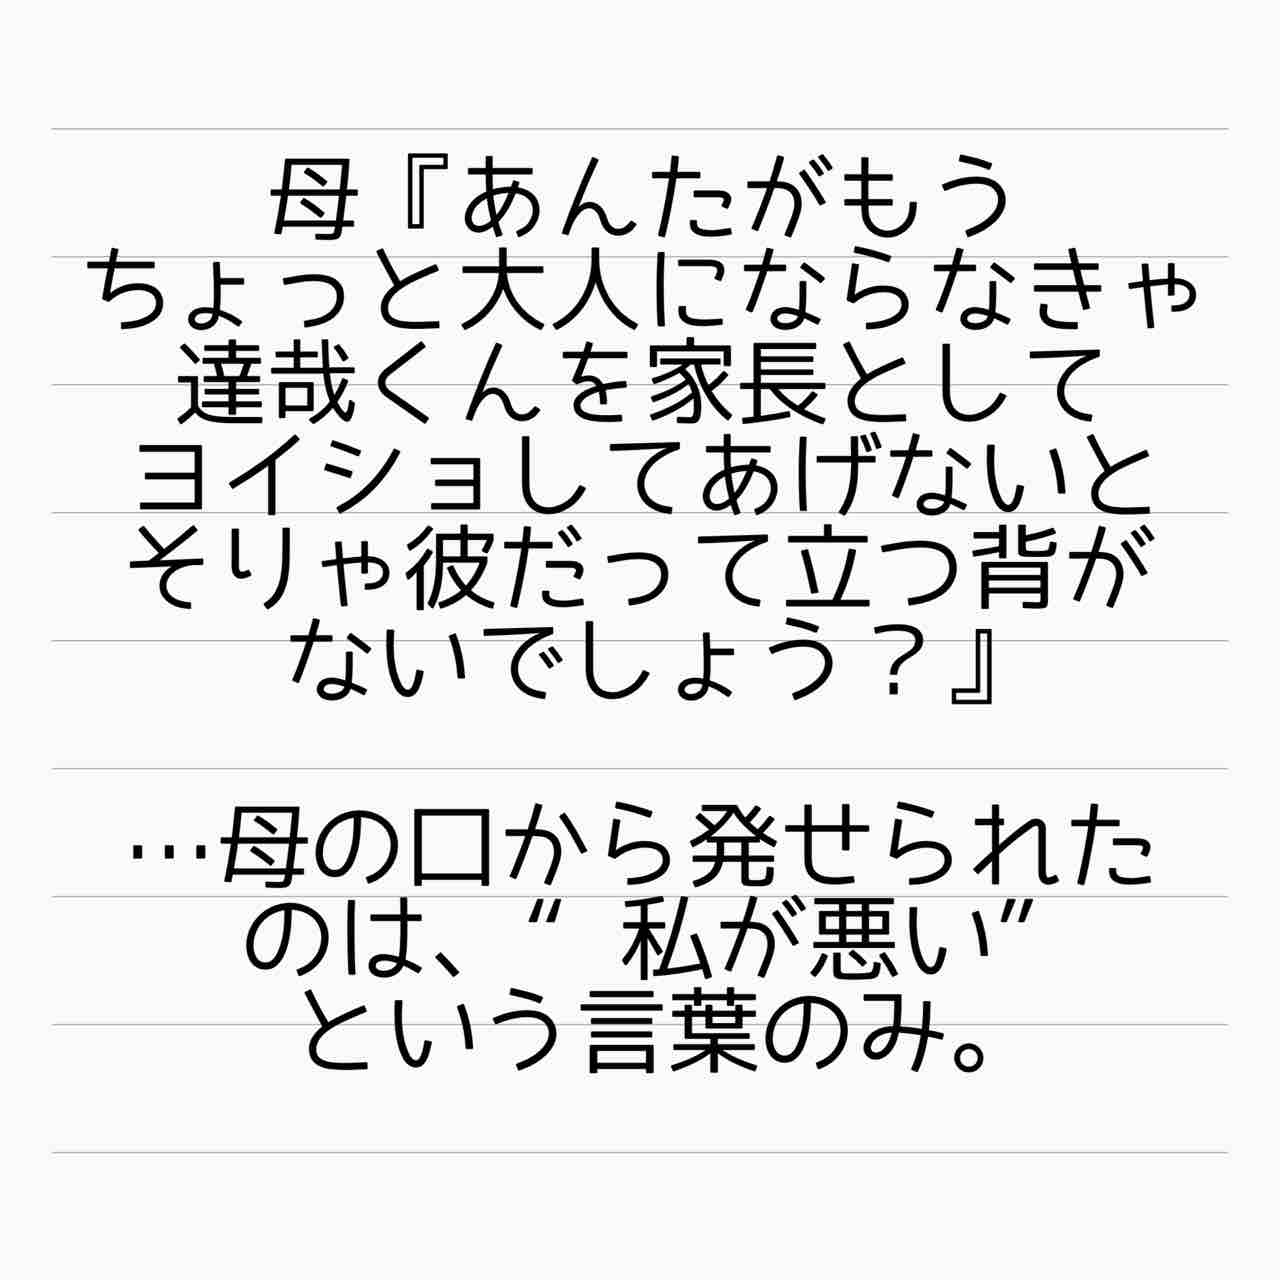 母『あんたがもう
ちょっと大人にならなきゃ
達哉くんを家長として
ヨイショしてあげないと
そりゃ彼だって立つ背が
ないでしょう？』
…母の口から発せられた
のは、“私が悪い”
という言葉のみ。